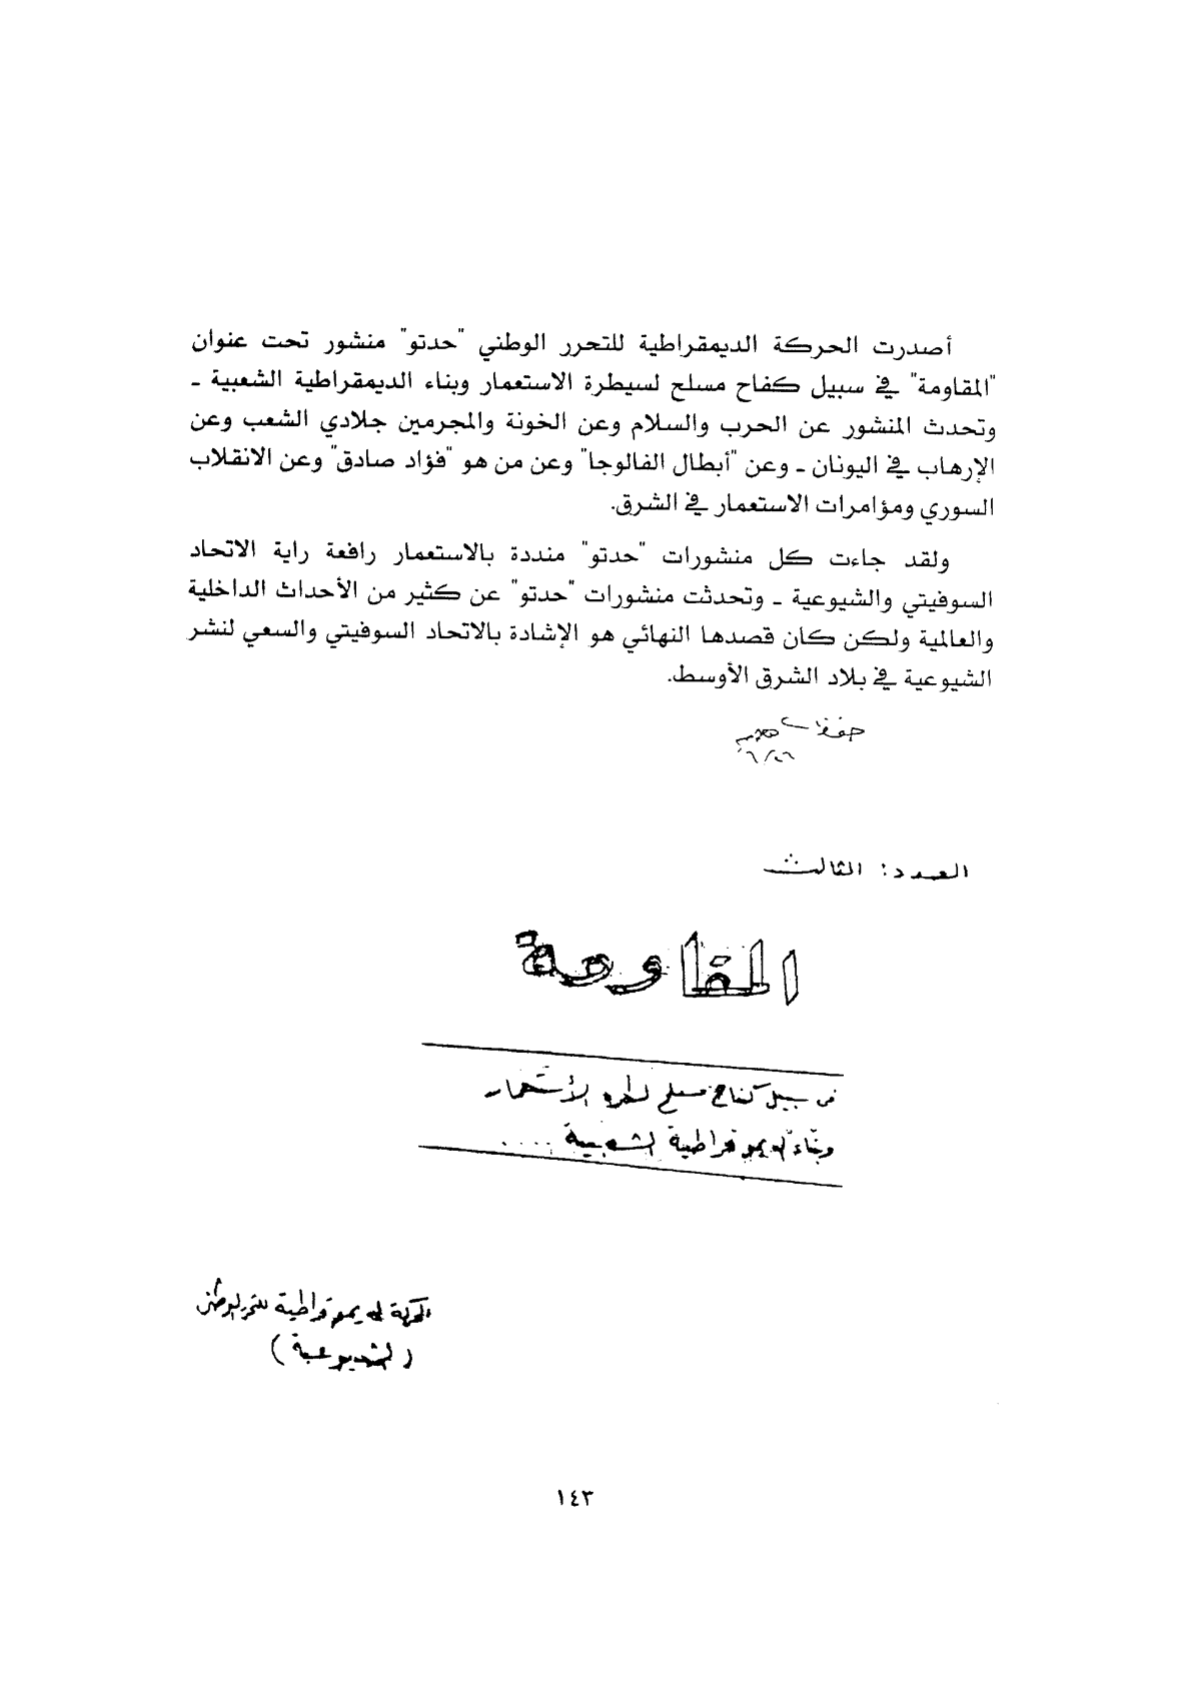 أصدرت الحركة الديمقراطية للتحرر الوطني "حدتو" منشور تحت عنوان
"المقاومة" في سبيل كفاح مسلح لسيطرة الاستعمار وبناء الديمقراطية الشعبية ـ
وتحدث المنشور عن الحرب والسلام وعن الخونة والمجرمين جلادي الشعب وعن
الإرهاب في اليونان ـ وعن "أبطال الفالوجا" وعن من هو "فؤاد صادق" وعن الانقلاب
السوري ومؤامرات الاستعمار في الشرق.
ولقد جاءت كل منشورات "حدتو" منددة بالاستعمار رافعة راية الاتحاد
السوفيتي والشيوعية ـ وتحدثت منشورات "حدتو" عن كثير من الأحداث الداخلية
والعالمية ولكن كان قصدها النهائي هو الإشادة بالاتحاد السوفيتي والسعي لنشر
الشيوعية في بلاد الشرق الأوسط.
العدد: الثالث
المقاومة
في سبيل كفاح مسلح الأستعمار
وبناء الديموقراطية الشعبية ....
الحركة الديموقراطية للتحرر الوطني
(الشيوعية)
١٤٣